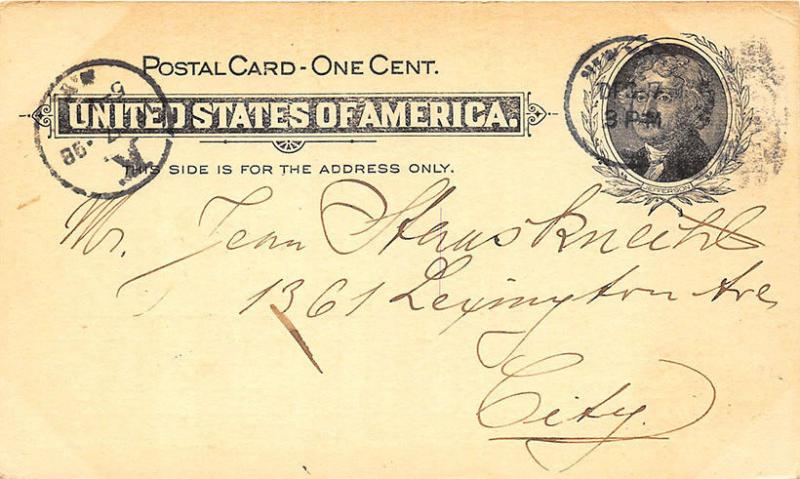 POSTAL CARD - ONE CENT.
UNITED STATES OF AMERICA.
THIS SIDE IS FOR THE ADDRESS ONLY.
DEC 7
3 PM
JEFFERSON
K.
98
Mr. Jean Hausknecht
1361 Lexington Ave
City.